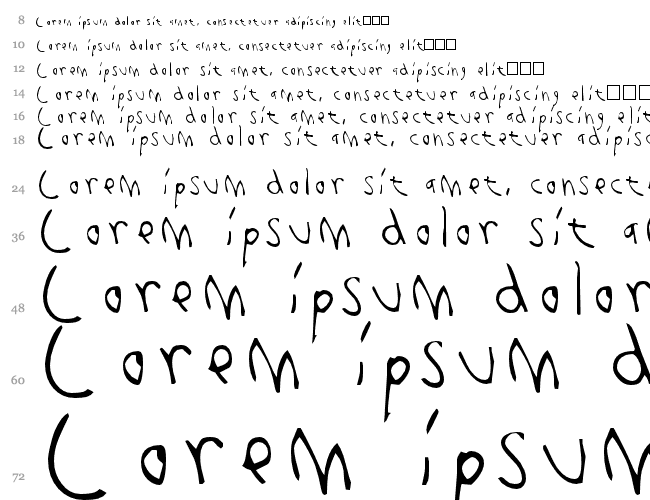 8 Lorem ipsum dolor sit amet, consectetuer adipiscing elit□□□
10 Lorem ipsum dolor sit amet, consectetuer adipiscing elit□□□
12 Lorem ipsum dolor sit amet, consectetuer adipiscing elit□□□
14 Lorem ipsum dolor sit amet, consectetuer adipiscing elit□□□
16 Lorem ipsum dolor sit amet, consectetuer adipiscing elit
18 Lorem ipsum dolor sit amet, consectetuer adipisc
24 Lorem ipsum dolor sit amet, consect
36 Lorem ipsum dolor sit a
48 Lorem ipsum dolor
60 Lorem ipsum d
72 Lorem ipsum